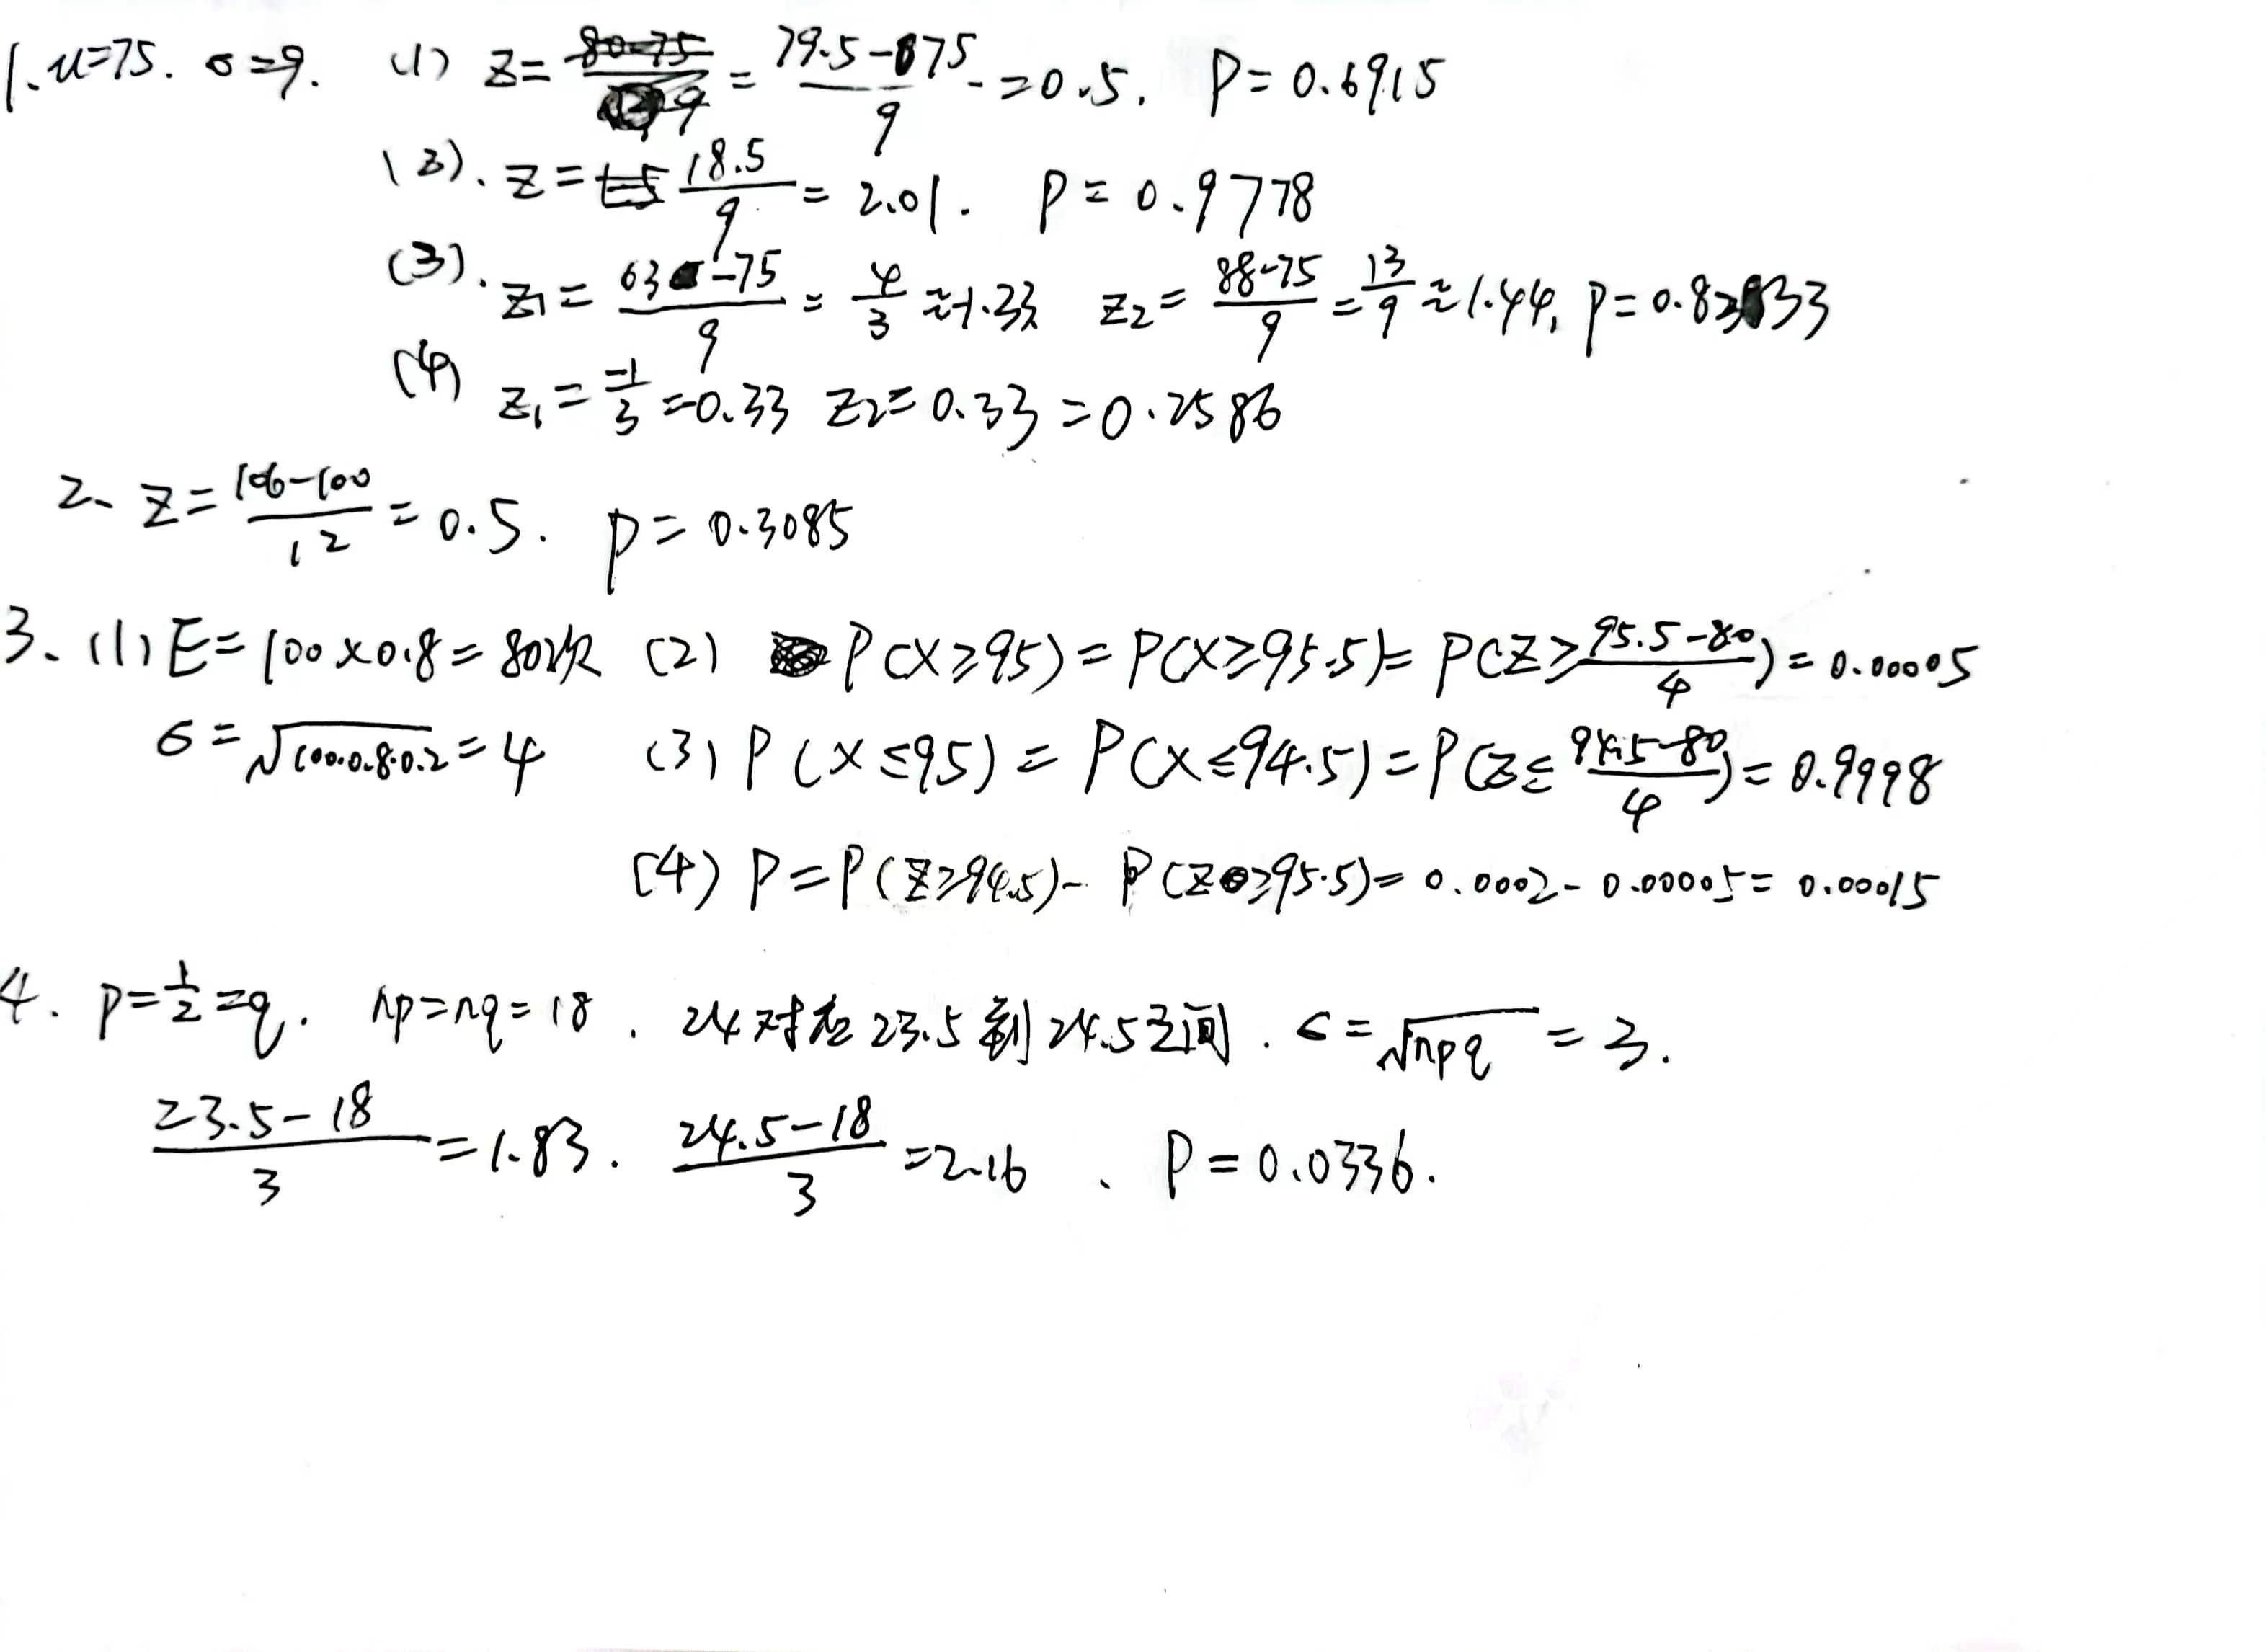 1. u=75. σ=9. (1) z= 80-75/9 = 79.5-75/9 =0.5. P=0.6915
(2). z= 18.5/9 = 2.01. P=0.9778
(3). z1= 63-75/9 = 4/3 ≈-1.33 z2= 88-75/9 = 13/9 ≈1.44, P=0.8333
(4) z1= -1/3 =-0.33 z2=0.33 =0.2586
2. z= 106-100/12 = 0.5. P=0.3085
3. (1) E=100×0.8=80次 (2) P(X≥95)=P(X≥95.5)=P(Z≥ 95.5-80/4)=0.00005
σ=√100·0.8·0.2=4 (3) P(X≤95)=P(X≤94.5)=P(Z≤ 94.5-80/4)=0.9998
(4) P=P(Z≥94.5)-P(Z≥95.5)=0.0002-0.00005=0.00015
4. P=1/2=q. np=nq=18. 24对应23.5到24.5之间. σ=√npq=3.
23.5-18/3 =1.83. 24.5-18/3 =2.16、P=0.0336.